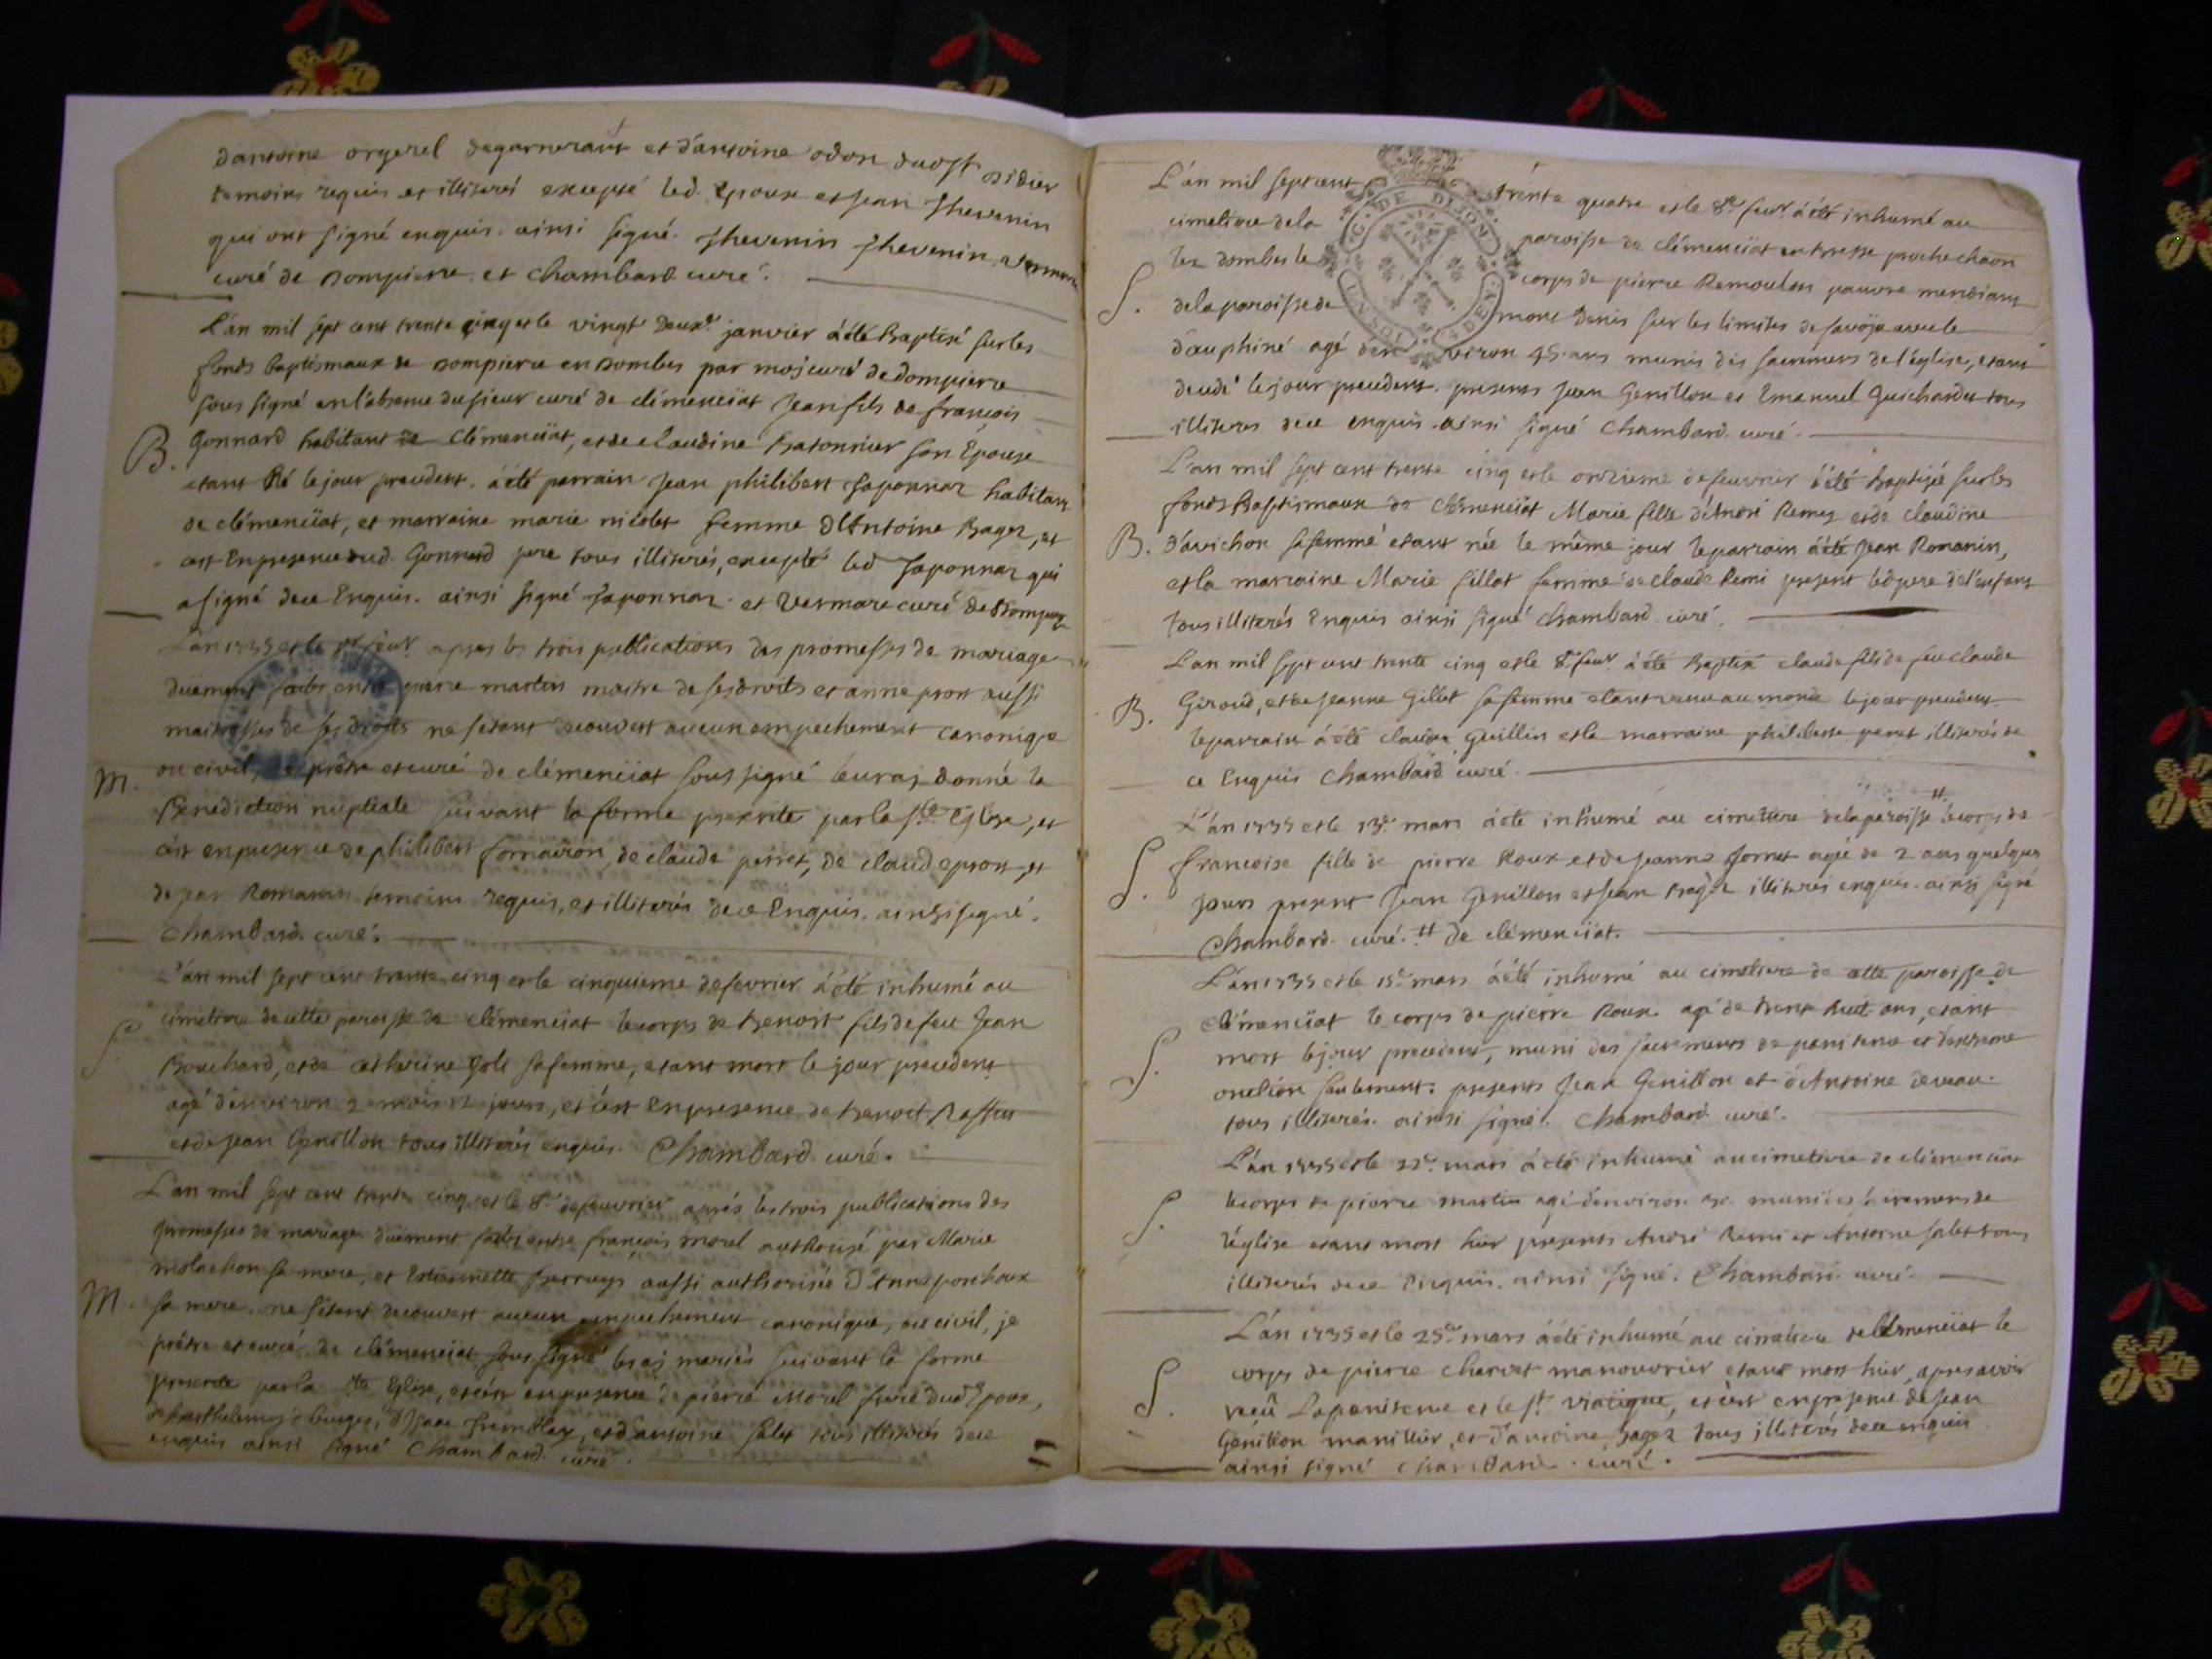 d'antoine orgerel degarnerans et d'antoine odon duost didier
temoins requis et illiterés excepté led. Epoux et jean Thevenin
qui ont signé enquis. ainsi signé. Thevenin Thevenin. Vermare
curé de Dompierre. et Chambard curé.
L'an mil sept cent trente cinq et le vingt deux.e janvier à été Baptisé sur les
fonds baptismaux de Dompierre en Dombes par moj curé de dompierre
sous signé en l'absence du sieur curé de clémenciat Jean fils de françois
B. Gonnard habitant de Clémenciat, et de claudine Batonnier son Epouse
etant né le jour precedent. à été parrain Jean philibert Taponnar habitant
de clémenciat, et marraine marie nicolet femme d'Antoine Bager, et
cest En presence dud. Gonnard pere tous illiterés, excepté led Taponnar qui
a signé de ce Enquis. ainsi signé Taponnar et Vermare curé de Dompierre
L'an 1735 et le feur. apres les trois publications des promesses de mariage
düement faites entre pierre martin maitre de ses droits et annie pron aussi
maitresses de ses droits ne setant decouvert aucun empechement canonique
M. ou civil, prêtre et curé de clémenciat sous signé leur aj donné la
Benediction nuptiale suivant la forme prescrite par la s.te Eglise, et
cest en presence de philibert fornairon, de claude perret, de claude pron, et
de jean Romanin temoins requis, et illiterés de ce Enquis. ainsi signé.
Chambard curé.
L'an mil sept cent trente cinq et le cinquieme de fevrier à été inhumé au
S. cimetiere de cette paroisse de clémenciat le corps de Benoit fils de feu Jean
Bouchard, et de catherine Goli sa femme, etant mort le jour precedent
agé d'environ 2 mois jours, et c'est En presence de Benoit Raffin
et de Jean Genillon tous illiterés enquis. Chambard curé.
L'an mil sept cent trente cinq et le 8.e de feuvrier aprés les trois publications des
promesses de mariage düement faites entre françois morel authorisé par Marie
molachon sa mere, et Estiennette aussi authorisée d'Anne ponchoux
M. sa mere. ne s'étant decouvert aucun empechement canonique, ou civil, je
prêtre et curé de clémenciat sous signé les aj mariés suivant la forme
prescrite par la s.te Eglise, et c'est en presence de pierre Morel frere dud Epoux,
de Barthelemy burges, d'Isaac Tremblay, et d'antoine Salet tous illiterés de ce
enquis ainsi signé Chambard curé.
L'an mil sept cent trente quatre et le 8.e feur. à été inhumé au
cimetiere de la paroisse de clémenciat en Bresse proche chaon
les dombes le corps de pierre Remoulon pauvre mendiant
S. de la paroisse de mont Denis sur les limites de savoje avec le
dauphiné agé d'environ 45 ans munis des sacremens de l'église, etant
decedé le jour precedent. presents Jean Genillon et Emanuel Guichardet tous
illiteres de ce enquis. ainsi signé Chambard curé.
L'an mil sept cent trente cinq et le onzieme de feuvrier à été Baptisée sur les
fonds Baptismaux de Clémenciat Marie fille d'André Remy et de claudine
B. d'avichon sa femme etant née le même jour le parrain à été Jean Romanin,
et la marraine Marie fillot femme de claude Remi present led pere de l'enfant
tous illiterés Enquis ainsi signé Chambard curé.
L'an mil sept cent trente cinq et le 8.e feur à été Baptisé claude fils de feu claude
B. Giroud, et de Jeanne Gillet sa femme etant venu au monde le jour precedent
le parrain à été claude Guillin et la marraine philiberte peret illiterés de
ce Enquis Chambard curé.
L'an 1735 et le 13.e mars à été inhumé au cimetiere de la paroisse # le corps de
S. francoise fille de pierre Roux et de Jeanne fornet agé de 2 ans quelques
jours present Jean Genillon et Jean Bager illiterés enquis. ainsi signé
Chambard curé. # de clémenciat.
L'an 1735 et le 15.e mars à été inhumé au cimetiere de cette paroisse de
clémenciat le corps de pierre Roux agé de trente huit ans, etant
S. mort le jour precedent, muni des sacremens de penitence et d'extreme
onction seulement. presents Jean Genillon et d'Antoine deveau
tous illiterés. ainsi signé. Chambard curé.
L'an 1735 et le 22.e mars à été inhumé au cimetiere de clémenciat
S. le corps de pierre martin agé d'environ muni des sacremens de
l'église etant mort hier presents André Remi et Antoine Salet tous
illiterés de ce Enquis. ainsi signé. Chambard curé.
L'an 1735 et le 25.e mars à été inhumé au cimetiere de Clémenciat le
corps de pierre charvet manouvrier etant mort hier, apres avoir
S. receû La penitence et le st viatique, et c'est en presence de Jean
Genillon manillier, et d'antoine Bager tous illiterés de ce enquis
ainsi signé Chambard curé.